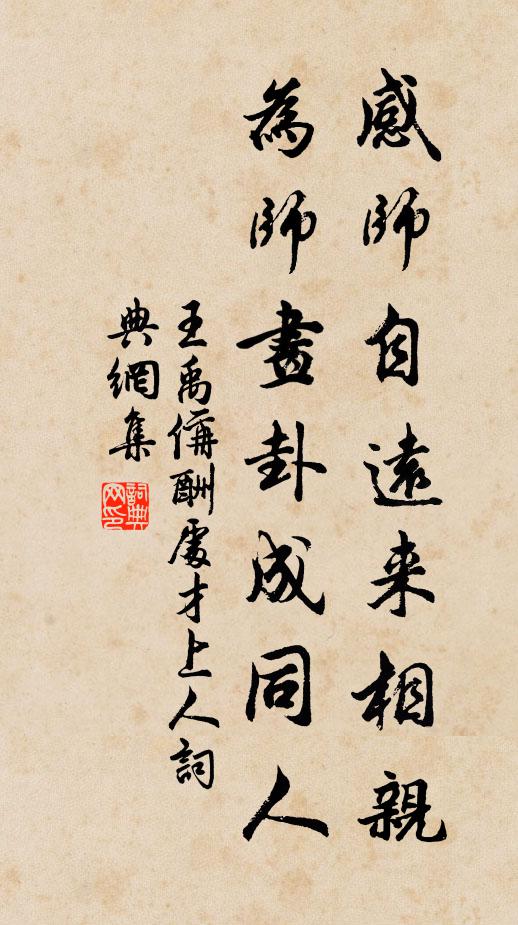 感師自遠来相親
為師畫卦成同人
王禹偁酬處才上人詞
典網集
詞典网印